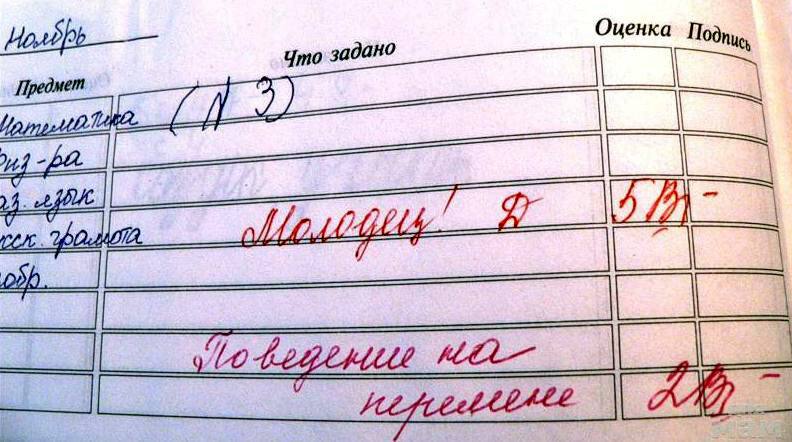 Ноябрь
Что задано
Оценка
Подпись
Предмет
Математика
(N 3)
физ-ра
каз. язык
Молодец! Д
5
грамота
Поведение на
перемене
2